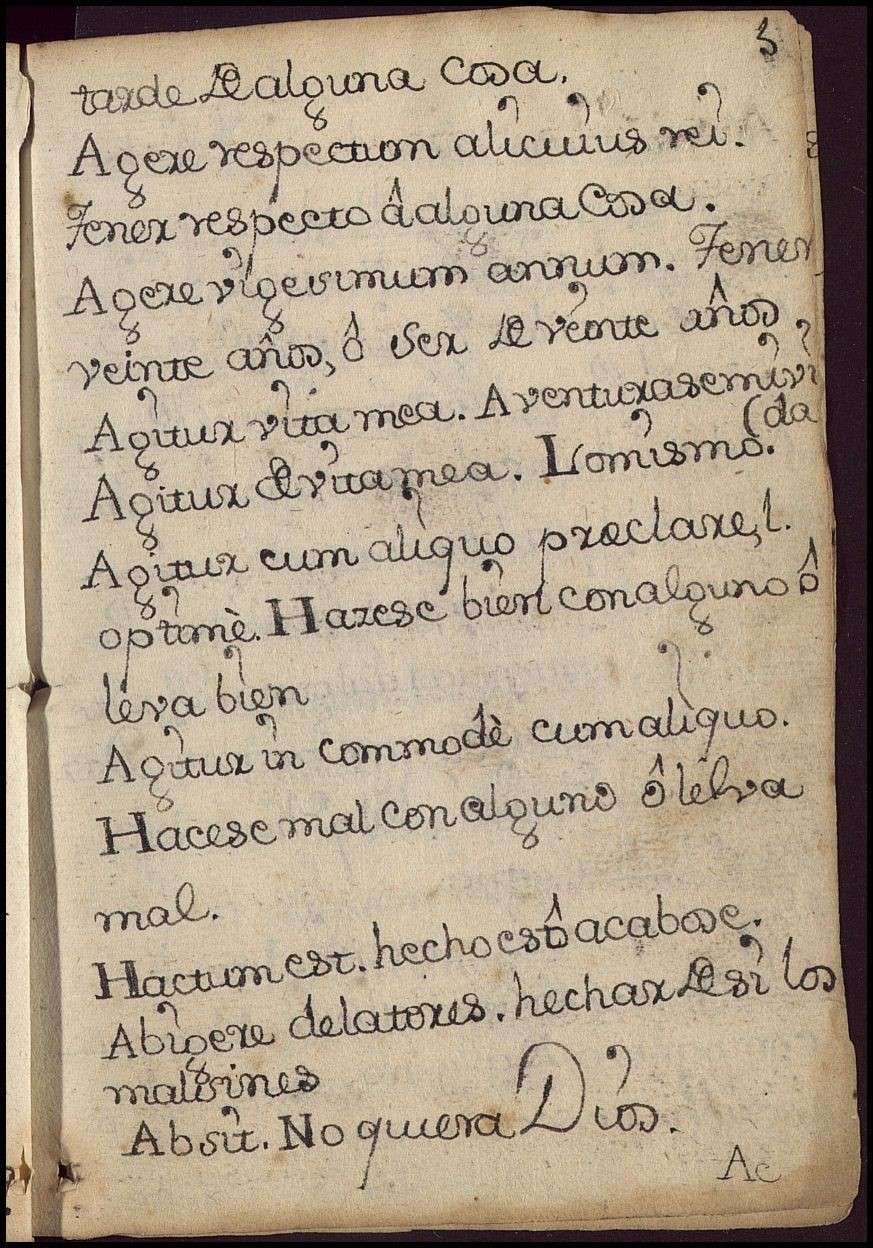 3
tarde de alguna cosa.
Agere respectum alicuius rei.
Tener respecto â alguna Cosa.
Agere vigesimum annum. Tener
veinte años, ô ser de veinte años
Agitur vita mea. Aventurase mi vi
(da
Agitur de vita mea. Lo mismo.
Agitur cum aliquo præclare, l.
optimè. Hazese bien con alguno ô
leva bien
Agitur in commodè cum aliquo.
Hacese mal con alguno ô lelva
mal.
Hactum est. hecho est ô acabose.
Abigere delatores. hechar de si los
malsines
Absit. No quiera Dios.
Ac